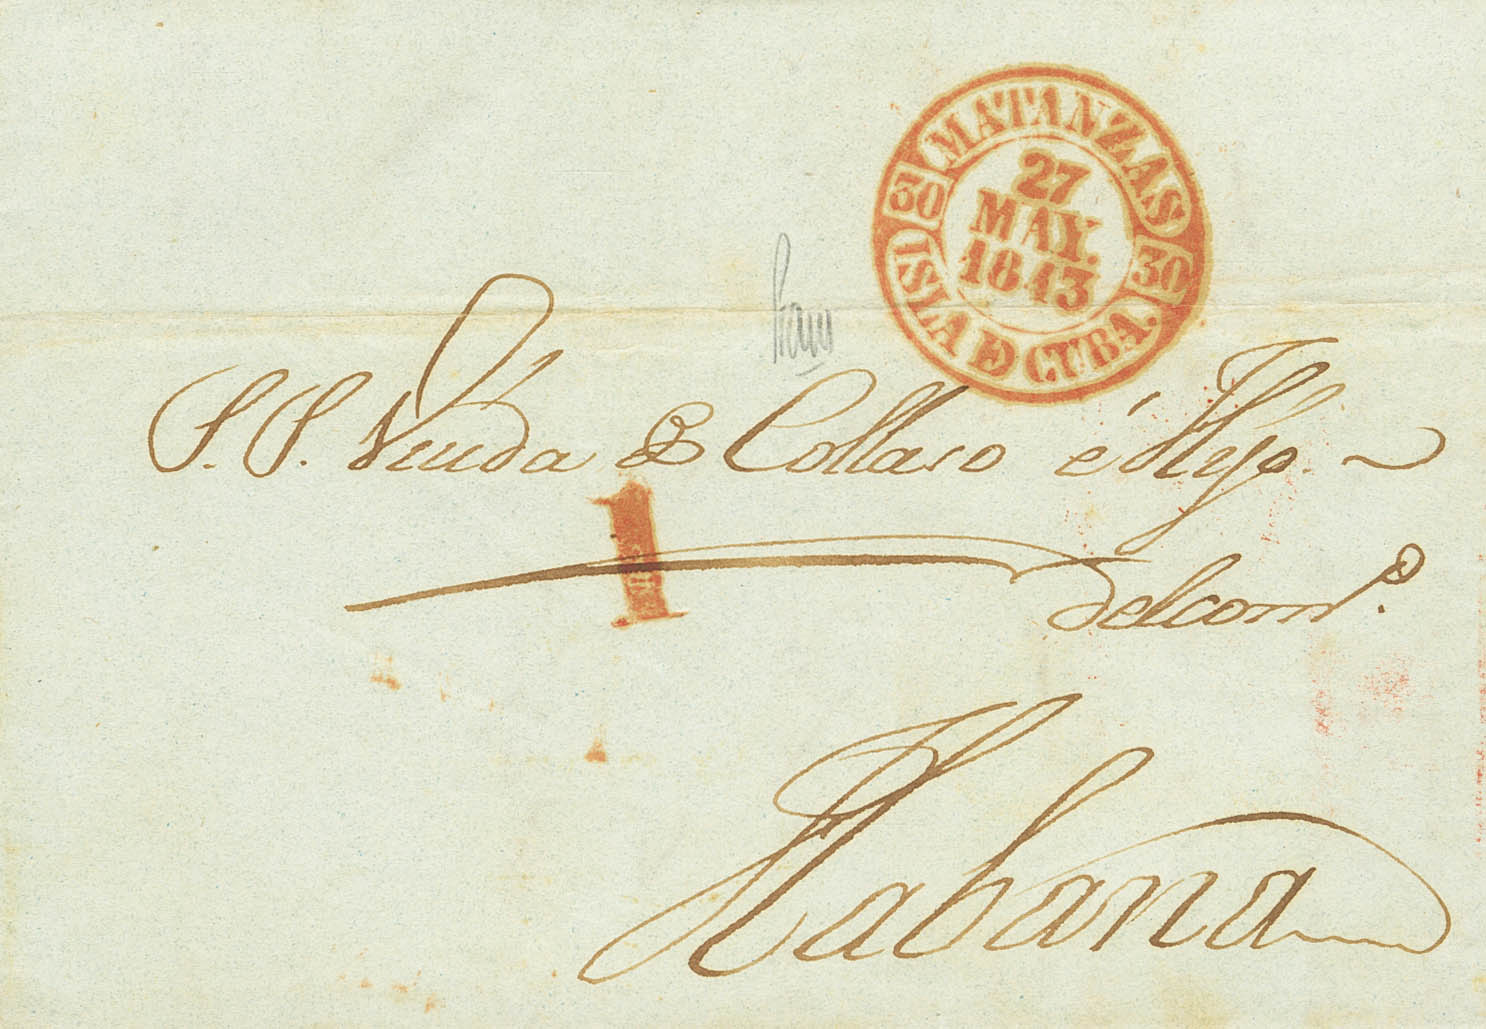 MATANZAS
30 30
27
MAY.
1843
ISLA D CUBA.
S. S. Viuda de Collaso é Hijo.
1
del comº.
Habana